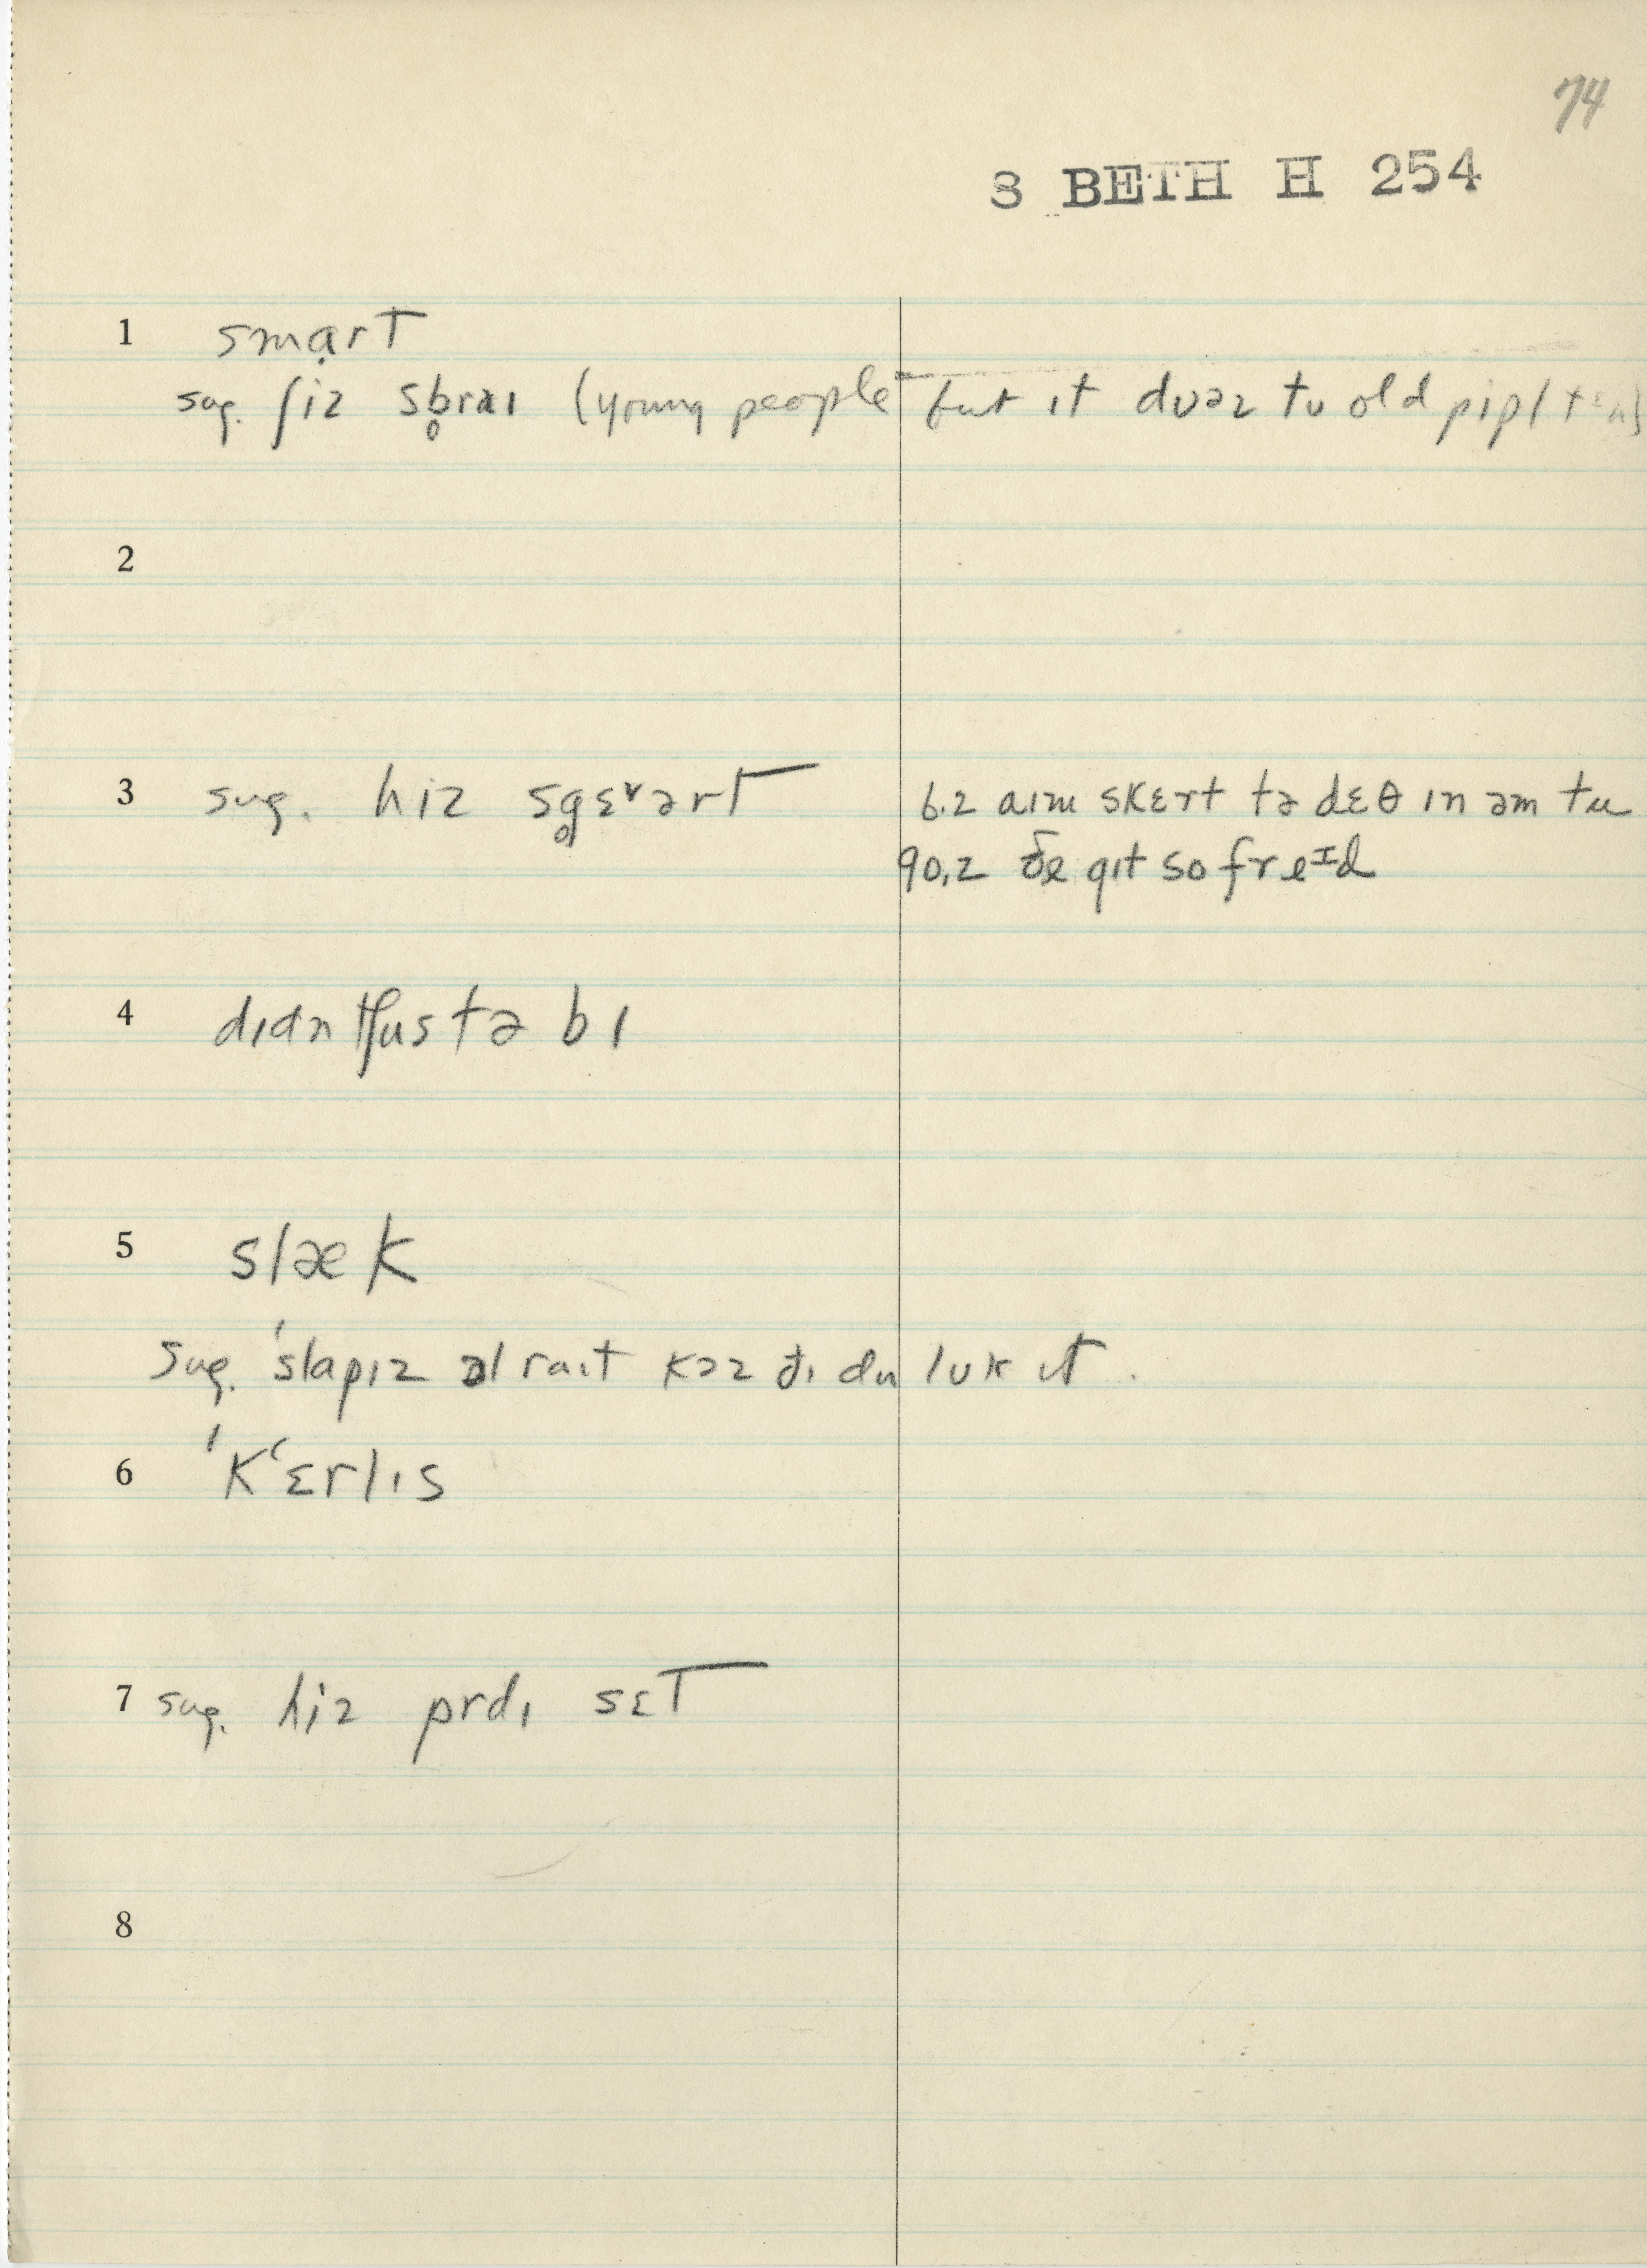 74
3 BETH H 254
1 smạrt
sug. ʃiz sb̥raɪ (young people but ɪt dʊəz tʊ old pipl
2
3 sug. hiz sg̊ɛ˅ərt 6.2 aɪm skɛrt tə dɛθ ɪn əm tu
90.2 ðe gɪt so freᴵd
4 dɪdn tʃus tə bɪ
5 slæk
sug. ˈslapɪz ɔl raɪt kəz ðɪ du lʊk ɪt.
6 ˈkʻɛrlɪs
7 sug. hiz prdɪ sɛt
8